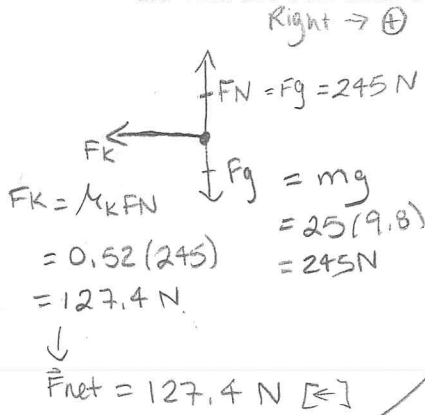 Right → ⊕
FN = Fg = 245 N
FK
Fg = mg
= 25(9.8)
= 245N
FK = μKFN
= 0.52(245)
= 127.4 N
↓
F⃗net = 127.4 N [←]